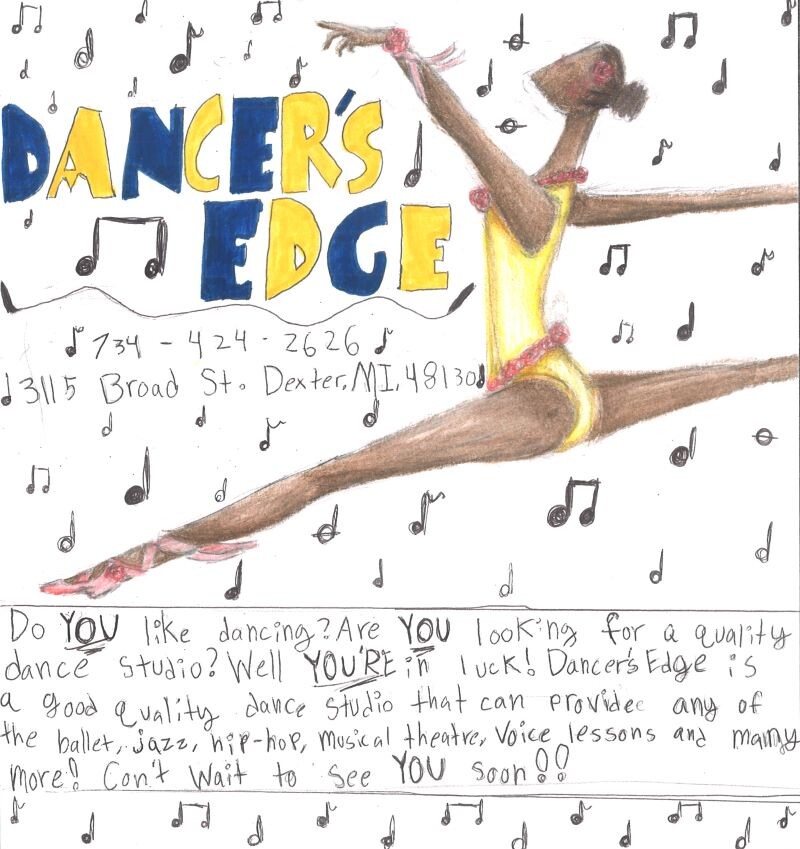 DANCER'S
EDGE
734-424-2626
3115 Broad St. Dexter, MI, 48130
Do YOU like dancing? Are YOU looking for a quality
dance studio? Well YOU'RE in luck! Dancer's Edge is
a good quality dance studio that can provide any of
the ballet, jazz, hip-hop, musical theatre, voice lessons and many
more! Can't wait to see YOU soon!!